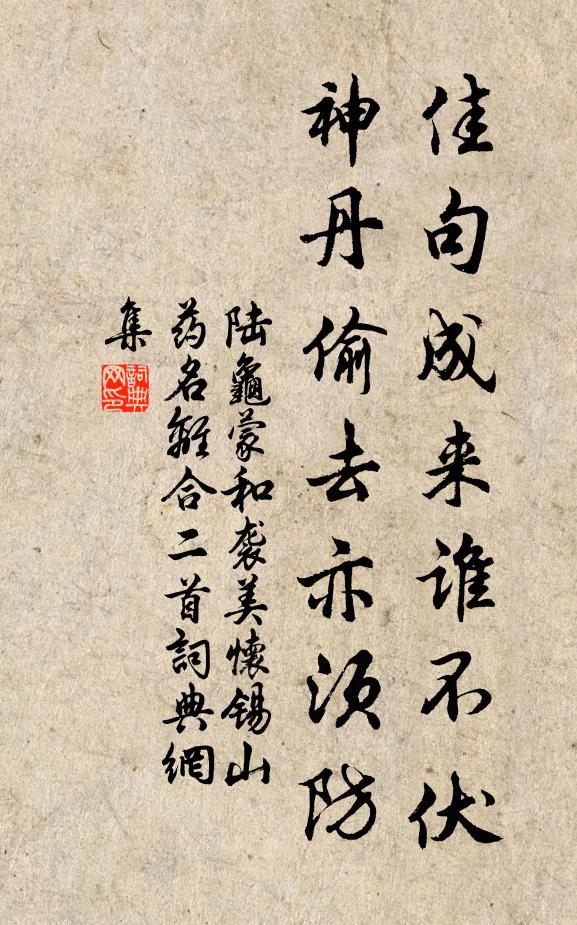 佳句成来谁不伏
神丹偷去亦须防
陆龜蒙和袭美懷锡山
药名離合二首詞典網
集
詞典
网印